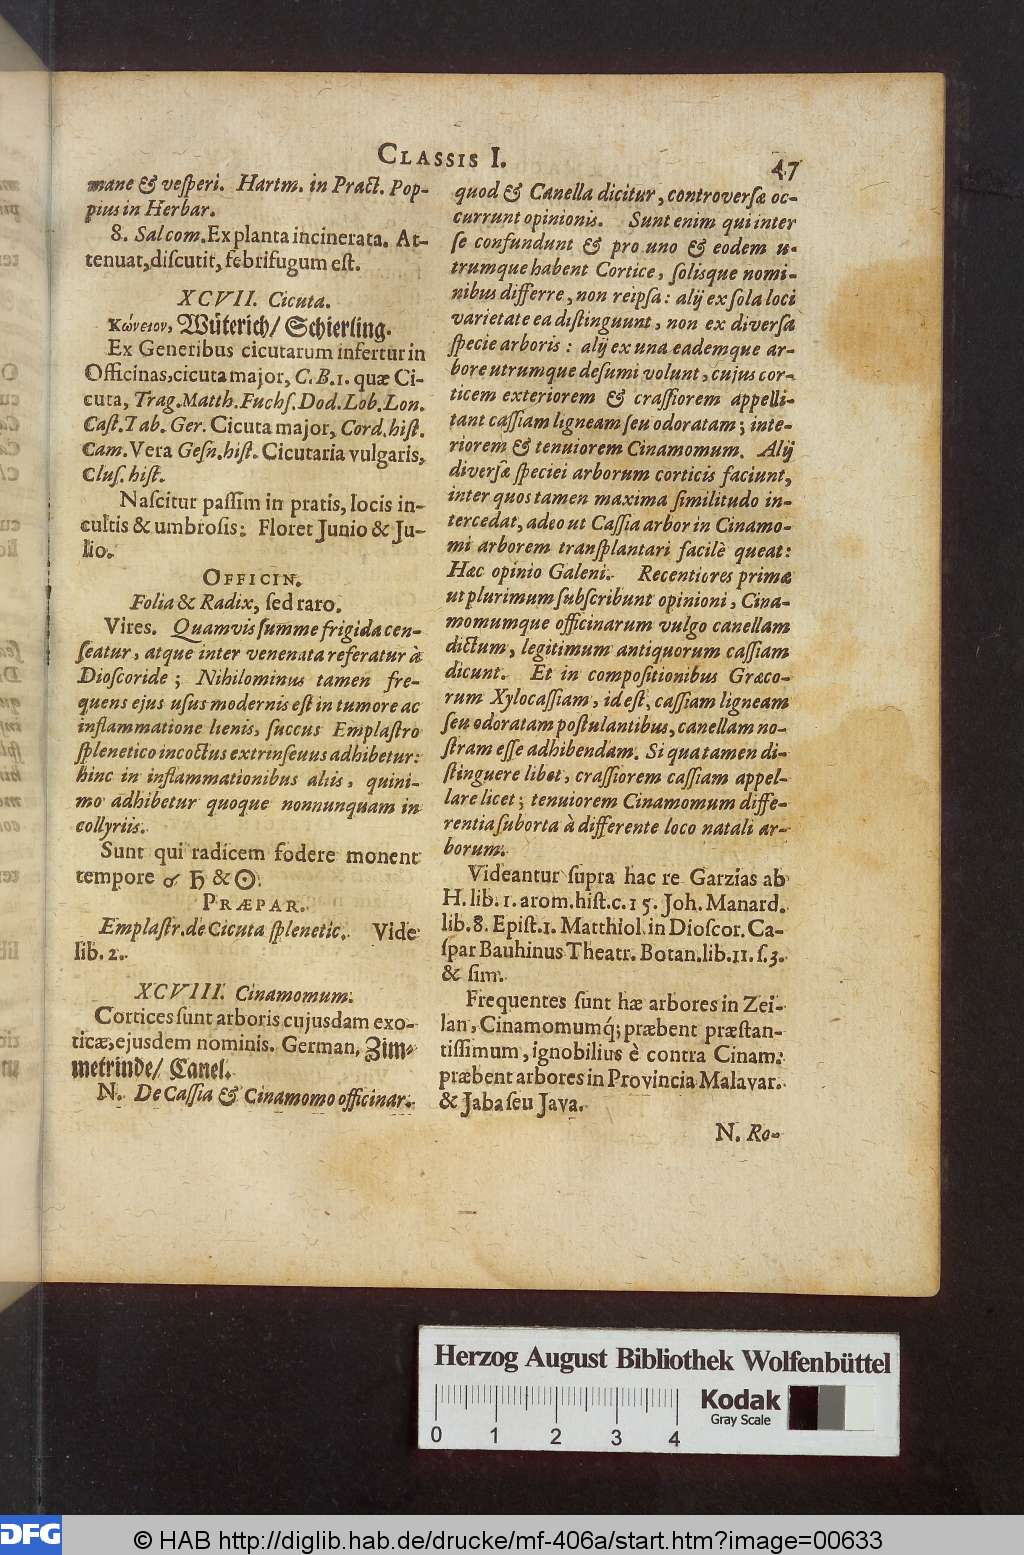 CLASSIS I.
47
mane & vesperi. Hartm. in Pract. Pop-
pius in Herbar.
8. Sal com. Ex planta incinerata. At-
tenuat, discutit, febrifugum est.
XCVII. Cicuta.
Κώνειον, Wüterich/ Schierling.
Ex Generibus cicutarum infertur in
Officinas, cicuta major, C. B. 1. quæ Ci-
cuta, Trag. Matth. Fuchs. Dod. Lob. Lon.
Cast. Tab. Ger. Cicuta major, Cord. hist.
Cam. Vera Gesn. hist. Cicutaria vulgaris,
Clus. hist.
Nascitur passim in pratis, locis in-
cultis & umbrosis: Floret Junio & Ju-
lio.
OFFICIN.
Folia & Radix, sed raro.
Vires. Quamvis summe frigida cen-
seatur, atque inter venenata referatur à
Dioscoride; Nihilominus tamen fre-
quens ejus usus modernis est in tumore ac
inflammatione lienis, succus Emplastro
splenetico incoctus extrinseuus adhibetur:
hinc in inflammationibus aliis, quini-
mo adhibetur quoque nonnunquam in
collyriis.
Sunt qui radicem fodere monent
tempore ☌ ♄ & ☉.
PRÆPAR.
Emplastr. de Cicuta splenetic. Vide
lib. 2.
XCVIII. Cinamomum.
Cortices sunt arboris cujusdam exo-
ticæ, ejusdem nominis. German. Zim-
metrinde/ Canel.
N. De Cassia & Cinamomo officinar.
quod & Canella dicitur, controversæ oc-
currunt opinionis. Sunt enim qui inter
se confundunt & pro uno & eodem u-
trumque habent Cortice, solisque nomi-
nibus differre, non reipsa: alij ex sola loci
varietate ea distinguunt, non ex diversa
specie arboris: alij ex una eademque ar-
bore utrumque desumi volunt, cujus cor-
ticem exteriorem & crassiorem appelli-
tant cassiam ligneam seu odoratam; inte-
riorem & tenuiorem Cinamomum. Alij
diversæ speciei arborum corticis faciunt,
inter quos tamen maxima similitudo in-
tercedat, adeo ut Cassia arbor in Cinamo-
mi arborem transplantari facilè queat:
Hæc opinio Galeni. Recentiores primæ
ut plurimum subscribunt opinioni, Cina-
momumque officinarum vulgo canellam
dictum, legitimum antiquorum cassiam
dicunt. Et in compositionibus Græco-
rum Xylocassiam, id est, cassiam ligneam
seu odoratam postulantibus, canellam no-
stram esse adhibendam. Si qua tamen di-
stinguere libet, crassiorem cassiam appel-
lare licet; tenuiorem Cinamomum diffe-
rentia suborta à differente loco natali ar-
borum.
Videantur supra hac re Garzias ab
H. lib. 1. arom. hist. c. 15. Joh. Manard.
lib. 8. Epist. 1. Matthiol. in Dioscor. Ca-
spar Bauhinus Theatr. Botan. lib. 11. s. 3.
& sim.
Frequentes sunt hæ arbores in Zei-
lan, Cinamomumq́; præbent præstan-
tissimum, ignobilius è contra Cinam:
præbent arbores in Provincia Malavar.
& Jaba seu Java.
N. Ro-
Herzog August Bibliothek Wolfenbüttel
0 1 2 3 4
Kodak
Gray Scale
DFG
© HAB http://diglib.hab.de/drucke/mf-406a/start.htm?image=00633